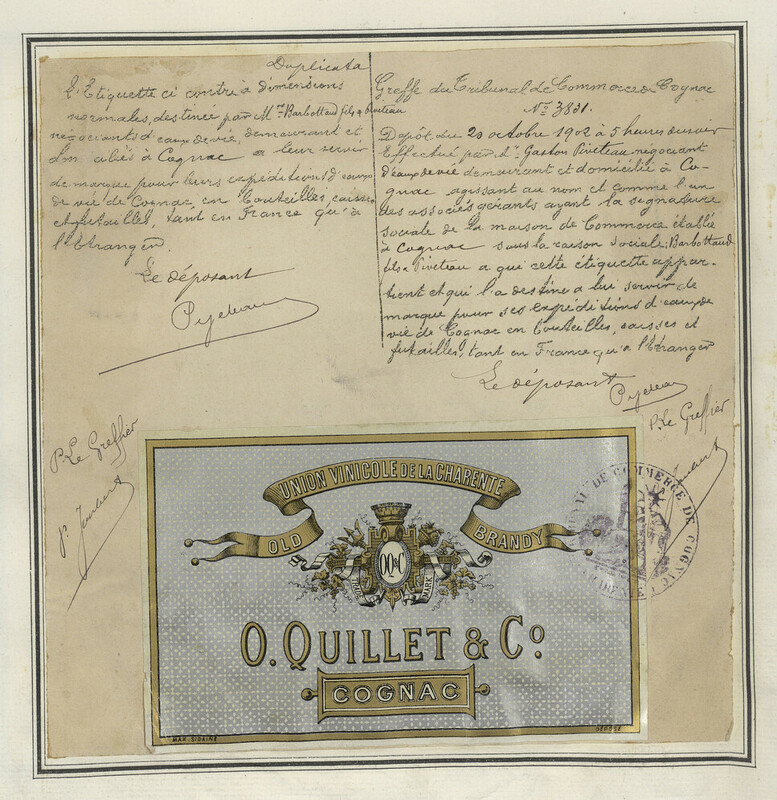 Duplicata
L'Etiquette ci contre à dimensions
normales, destinée par M.rs Barbottaud fils & Piveteau
négociants d'eaux de vie, demeurant et
domiciliés à Cognac a leur servir
de marque pour leurs expéditions d'eaux
de vie de Cognac, en bouteilles, caisses
et futailles, tant en France qu'à
l'Etranger.
Le déposant
Piveteau
Greffe du Tribunal de Commerce de Cognac
No 3831.
Dépôt du 20 octobre 1902 à 5 heures du soir
Effectué par Mr Gaston Piveteau négociant
d'eaux de vie demeurant et domicilié à Co-
gnac agissant au nom et comme l'un
des associés gérants ayant la signature
sociale de la maison de Commerce établie
à Cognac sous la raison sociale; Barbottaud
fils & Piveteau a qui cette étiquette appar-
tient et qui l'a destine a lui servir de
marque pour ses expéditions d'eaux de
vie de Cognac en bouteilles, caisses et
futailles, tant en France qu'a l'Etranger
Le déposant
Piveteau
P. Le Greffier
P. Le Greffier
UNION VINICOLE DE LA CHARENTE
OLD BRANDY
OQ&C
TRADE MARK
O. QUILLET & Co
COGNAC
MAN. SIDAINE
DÉPOSÉ
DE COMMERCE DE COGNAC